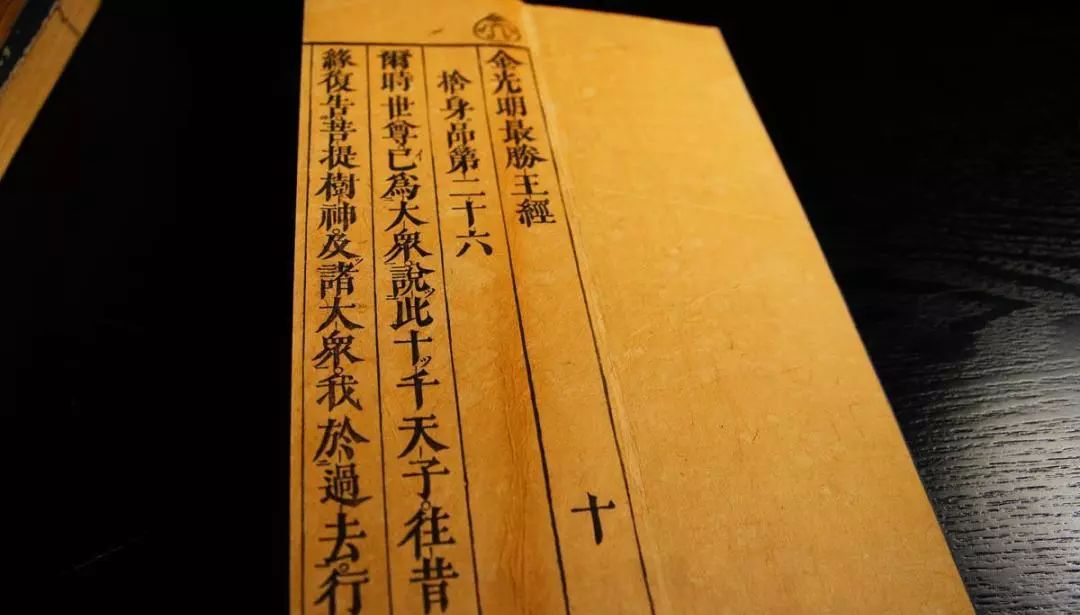 金光明最勝王經
捨身品第二十六
爾時世尊已為大衆說此十千天子往昔
緣復告菩提樹神及諸大衆我於過去行
十